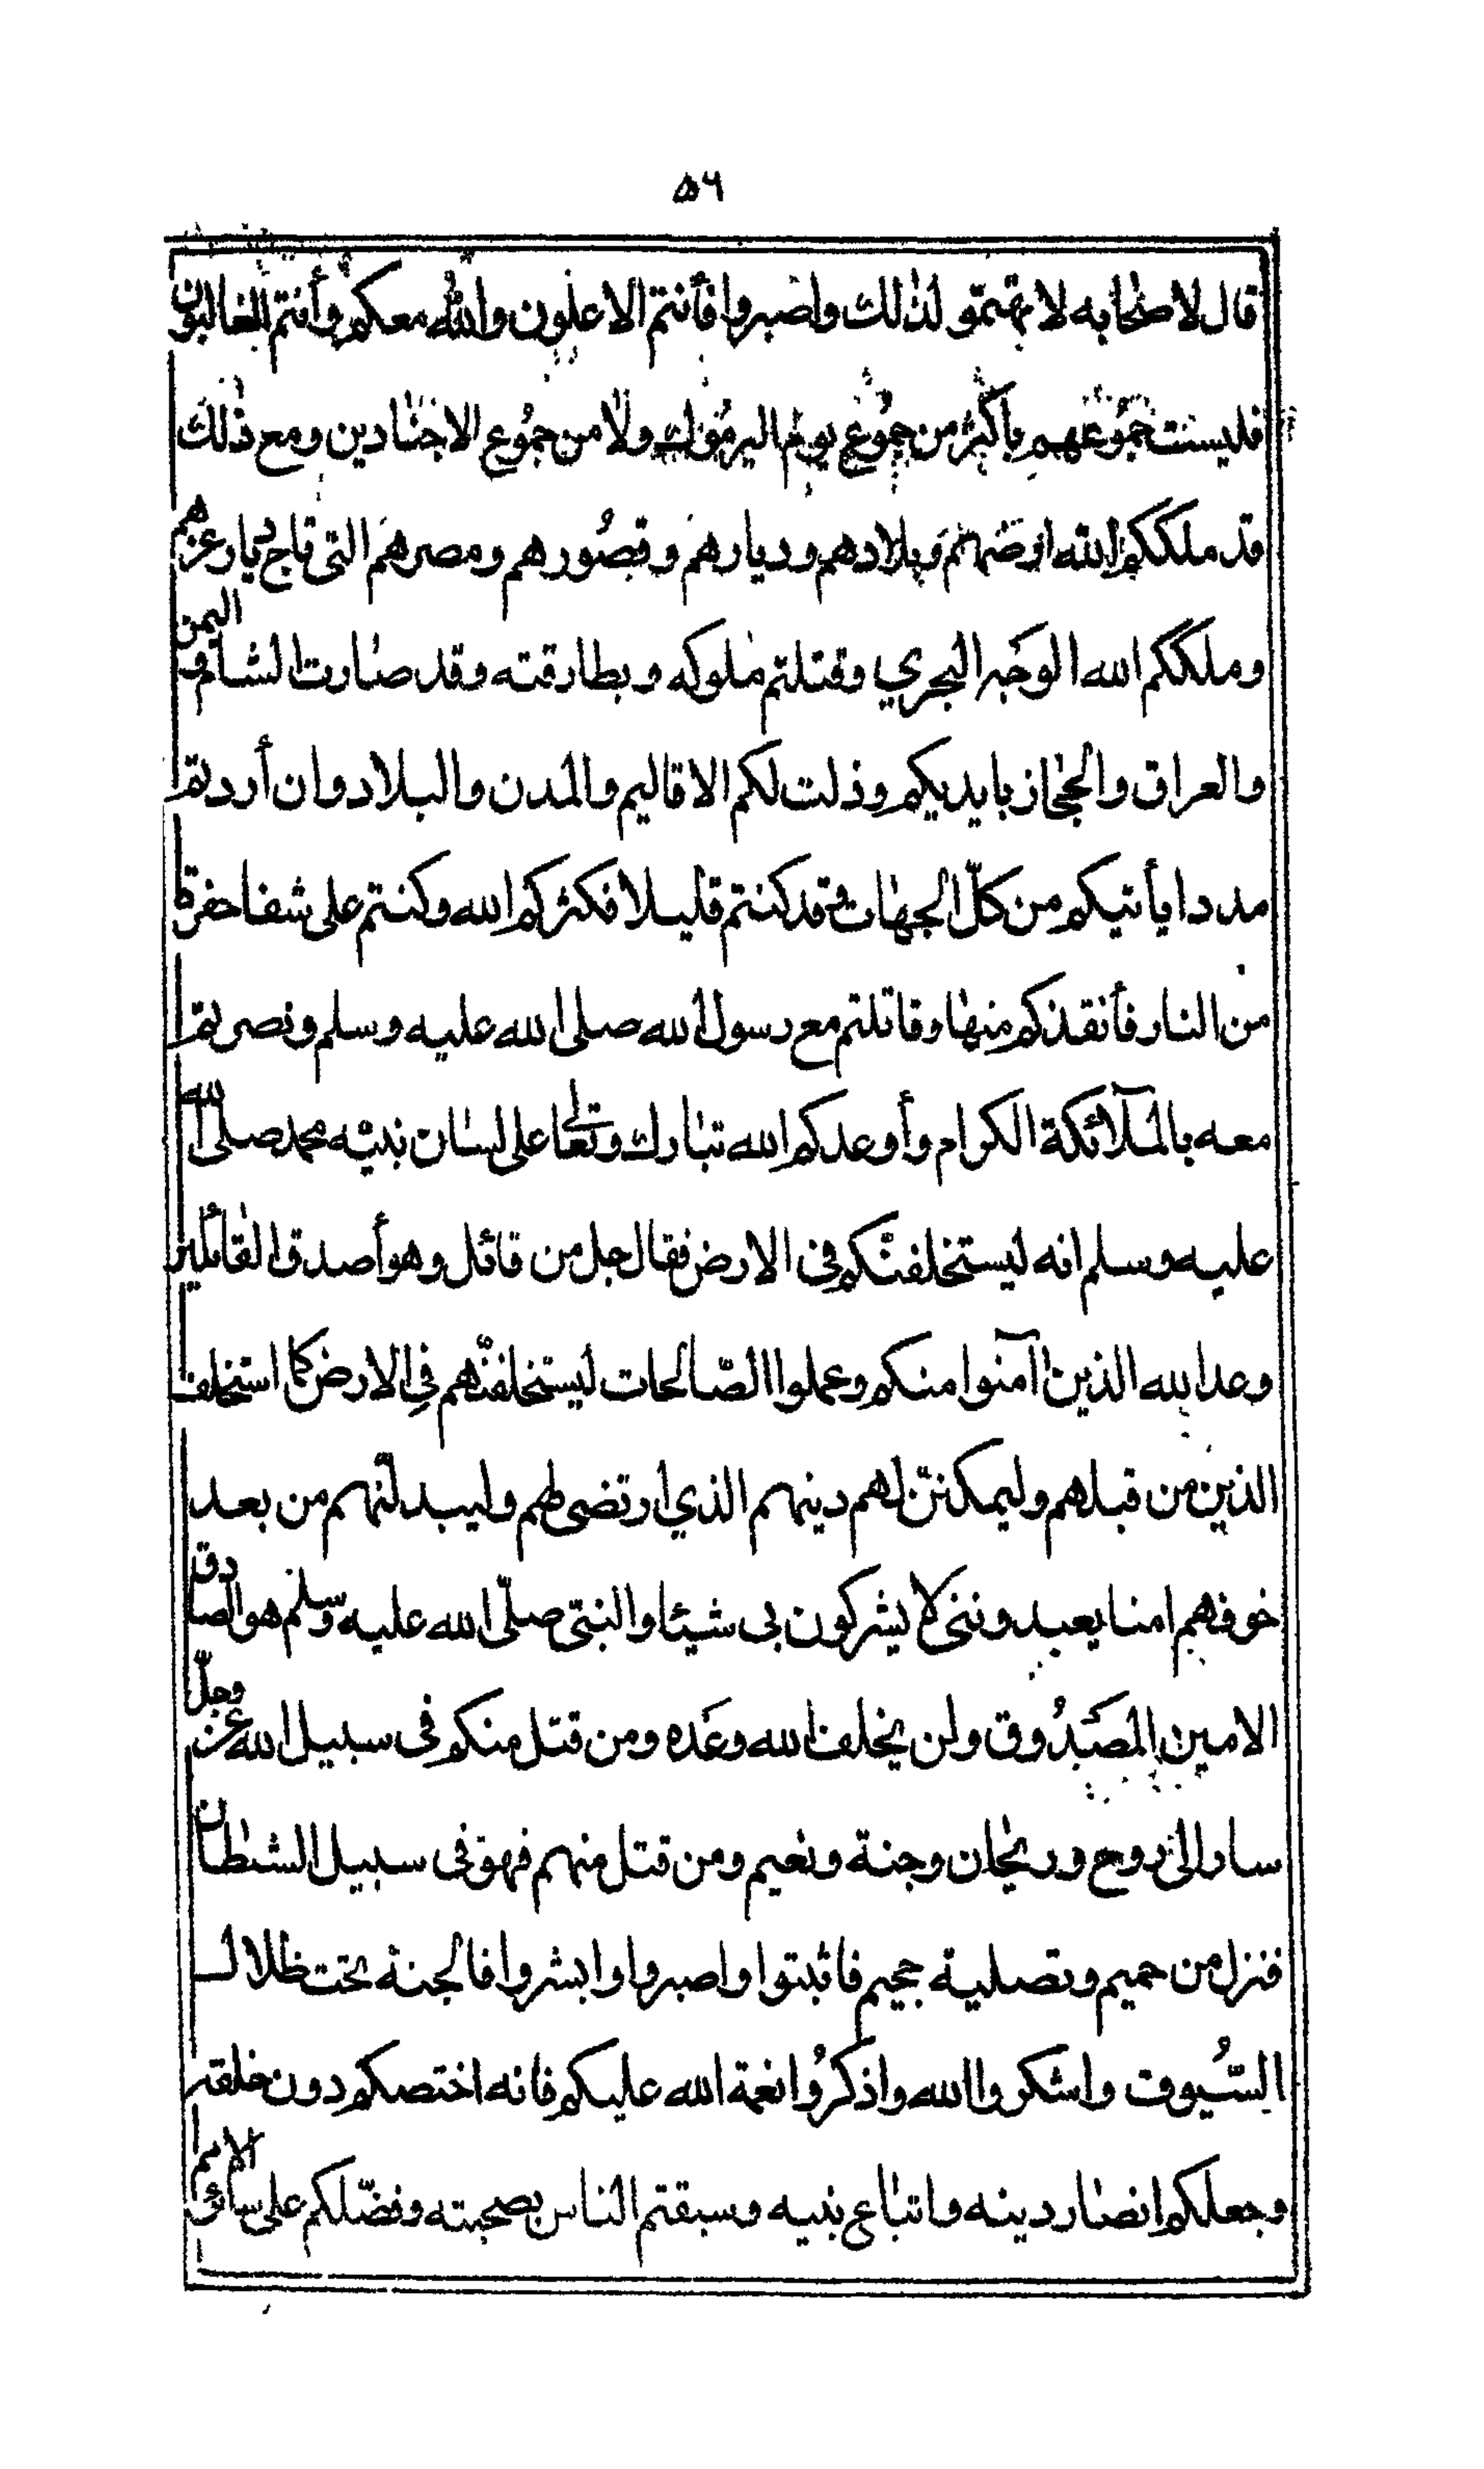 ٥٦
قال لاصحابه لا تهتمّو لذلك واصبروا فأنتم الاعلون والله معكم وأنتم الغالبون
فليست جموعهم باكثر من جموع يوم اليرموك ولا من جموع الاجنادين ومع ذلك
قد ملككم الله ارضهم وبلادهم وديارهم وقصورهم ومصرهم التى تاج ديار عزهم
وملككم الله الوجه البحري وقتلتم ملوكه وبطارقته وقد صارت الشام واليمن
والعراق والحجاز بايديكم وذلت لكم الاقاليم والمدن والبلاد وان أردتم
مددا يأتيكم من كلّ الجهات وقد كنتم قليلا فكثركم الله وكنتم على شفا حفرة
من النار فأنقذكم منها وقاتلتم مع رسول الله صلى الله عليه وسلم ونصرتم
معه بالملآئكة الكرام وأوعدكم الله تبارك وتعالى على لسان نبيّه محمد صلى الله
عليه وسلم انه ليستخلفنّكم فى الارض فقال جل من قائل وهو أصدق القائلين
وعد الله الذين آمنوا منكم وعملوا الصّالحات ليستخلفنّهم فِى الارض كما استخلف
الذين من قبلهم وليمكننّ لهم دينهم الذي ارتضى لهم وليبدلنّهم من بعد
خوفهم امنا يعبدوننى لا يشركون بى شيئا والنبىّ صلّى الله عليه وسلّم هو الصادق
الامين المصدُوق ولن يخلف الله وعَده ومن قتل منكم فى سبيل الله عز وجلّ
سار الى روح وريحان وجنة ونعيم ومن قتل منهم فهو فى سبيل الشطان
فنزل من حميم وتصلية جحيم فاثبتوا واصبروا وابشروا فالجنة تحت ظلال
السّيُوف واشكروا الله واذكرُوا نعمة الله عليكم فانه اختصكم دون خلقه
وجعلكم انصار دينه واتباع نبيه وسبقتم الناس بصحبته وفضّلكم على سائر الامم